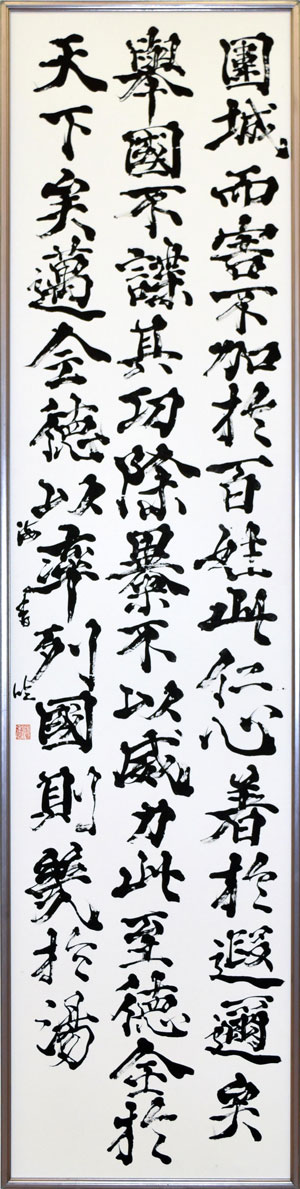 圍城而害不加於百姓此仁心著於遐邇矣
舉國不謀其功除暴不以威力此至德全於
天下矣邁全德以率列國則幾於湯